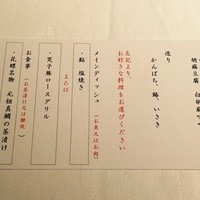 胡麻豆腐
造り
かんぱち、鯵、いさき
左記より、
お好きな料理を
お選びください
メインディッシュ（お魚又はお肉）
・鮎 塩焼き
または
・芙子豚ロースグリル
お食事（お茶漬け又は雑炊）
・花蝶名物 元祖真鯛の茶漬け